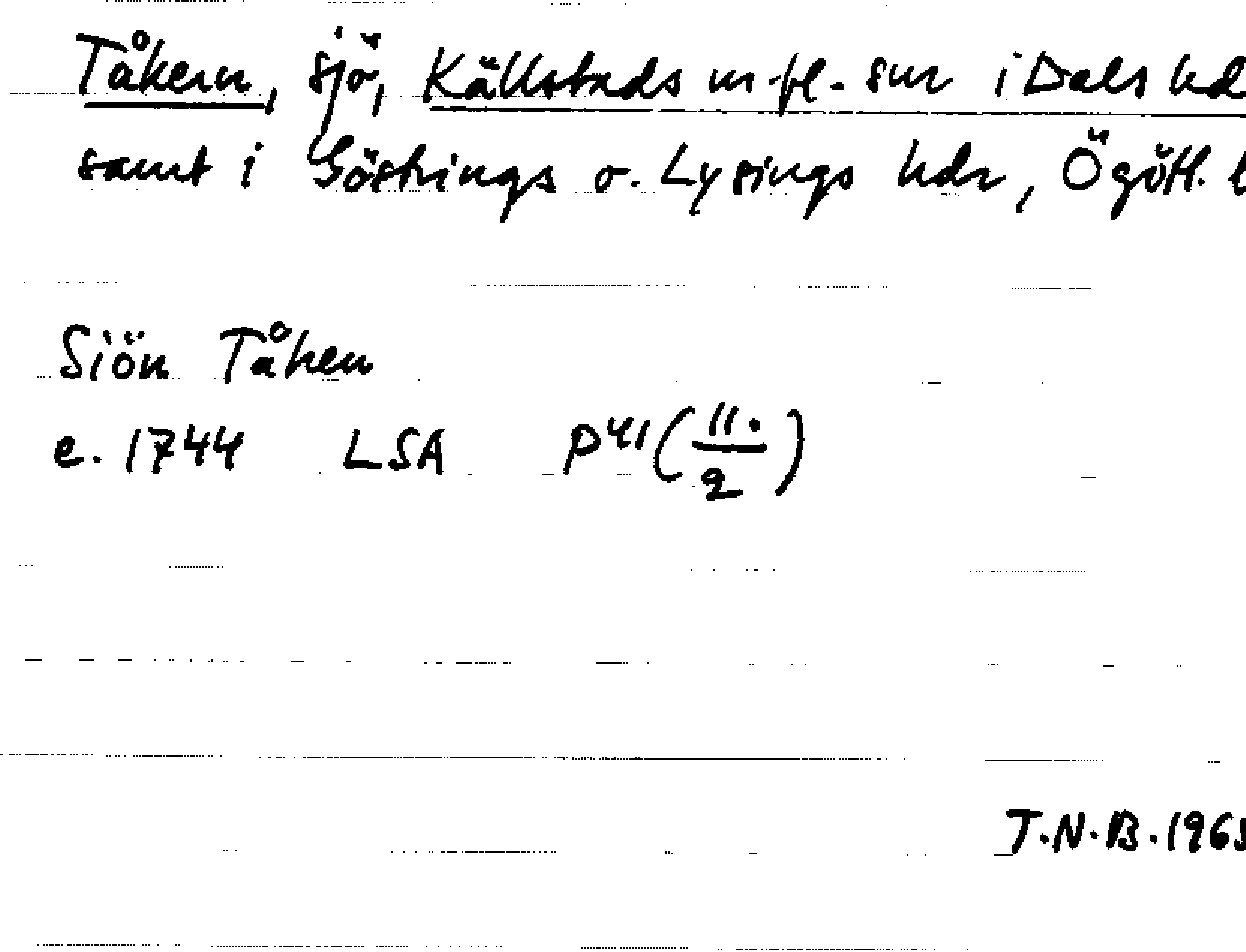 Tåkern, sjö, Källstads m.fl. snr i Dals hd
samt i Göstrings o. Lysings hdr, Ögötl. l
Siön Tåken
e. 1744 LSA P41(11./2)
J.N.B. 1965